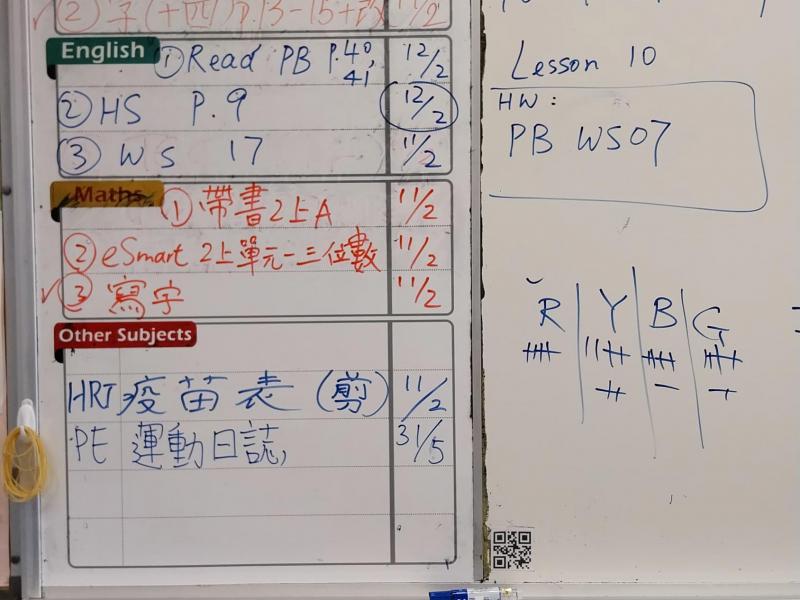 ② 字(十四)p.13-15+改 11/2
English
① Read PB P.40, 41 12/2
② HS P.9 12/2
③ WS 17 11/2
Maths
① 帶書2上A 11/2
② eSmart 2上單元一三位數 11/2
✓③ 寫字 11/2
Other Subjects
HRT 疫苗表(剪) 11/2
PE 運動日誌 31/5
Lesson 10
HW:
PB WS07
R Y B G